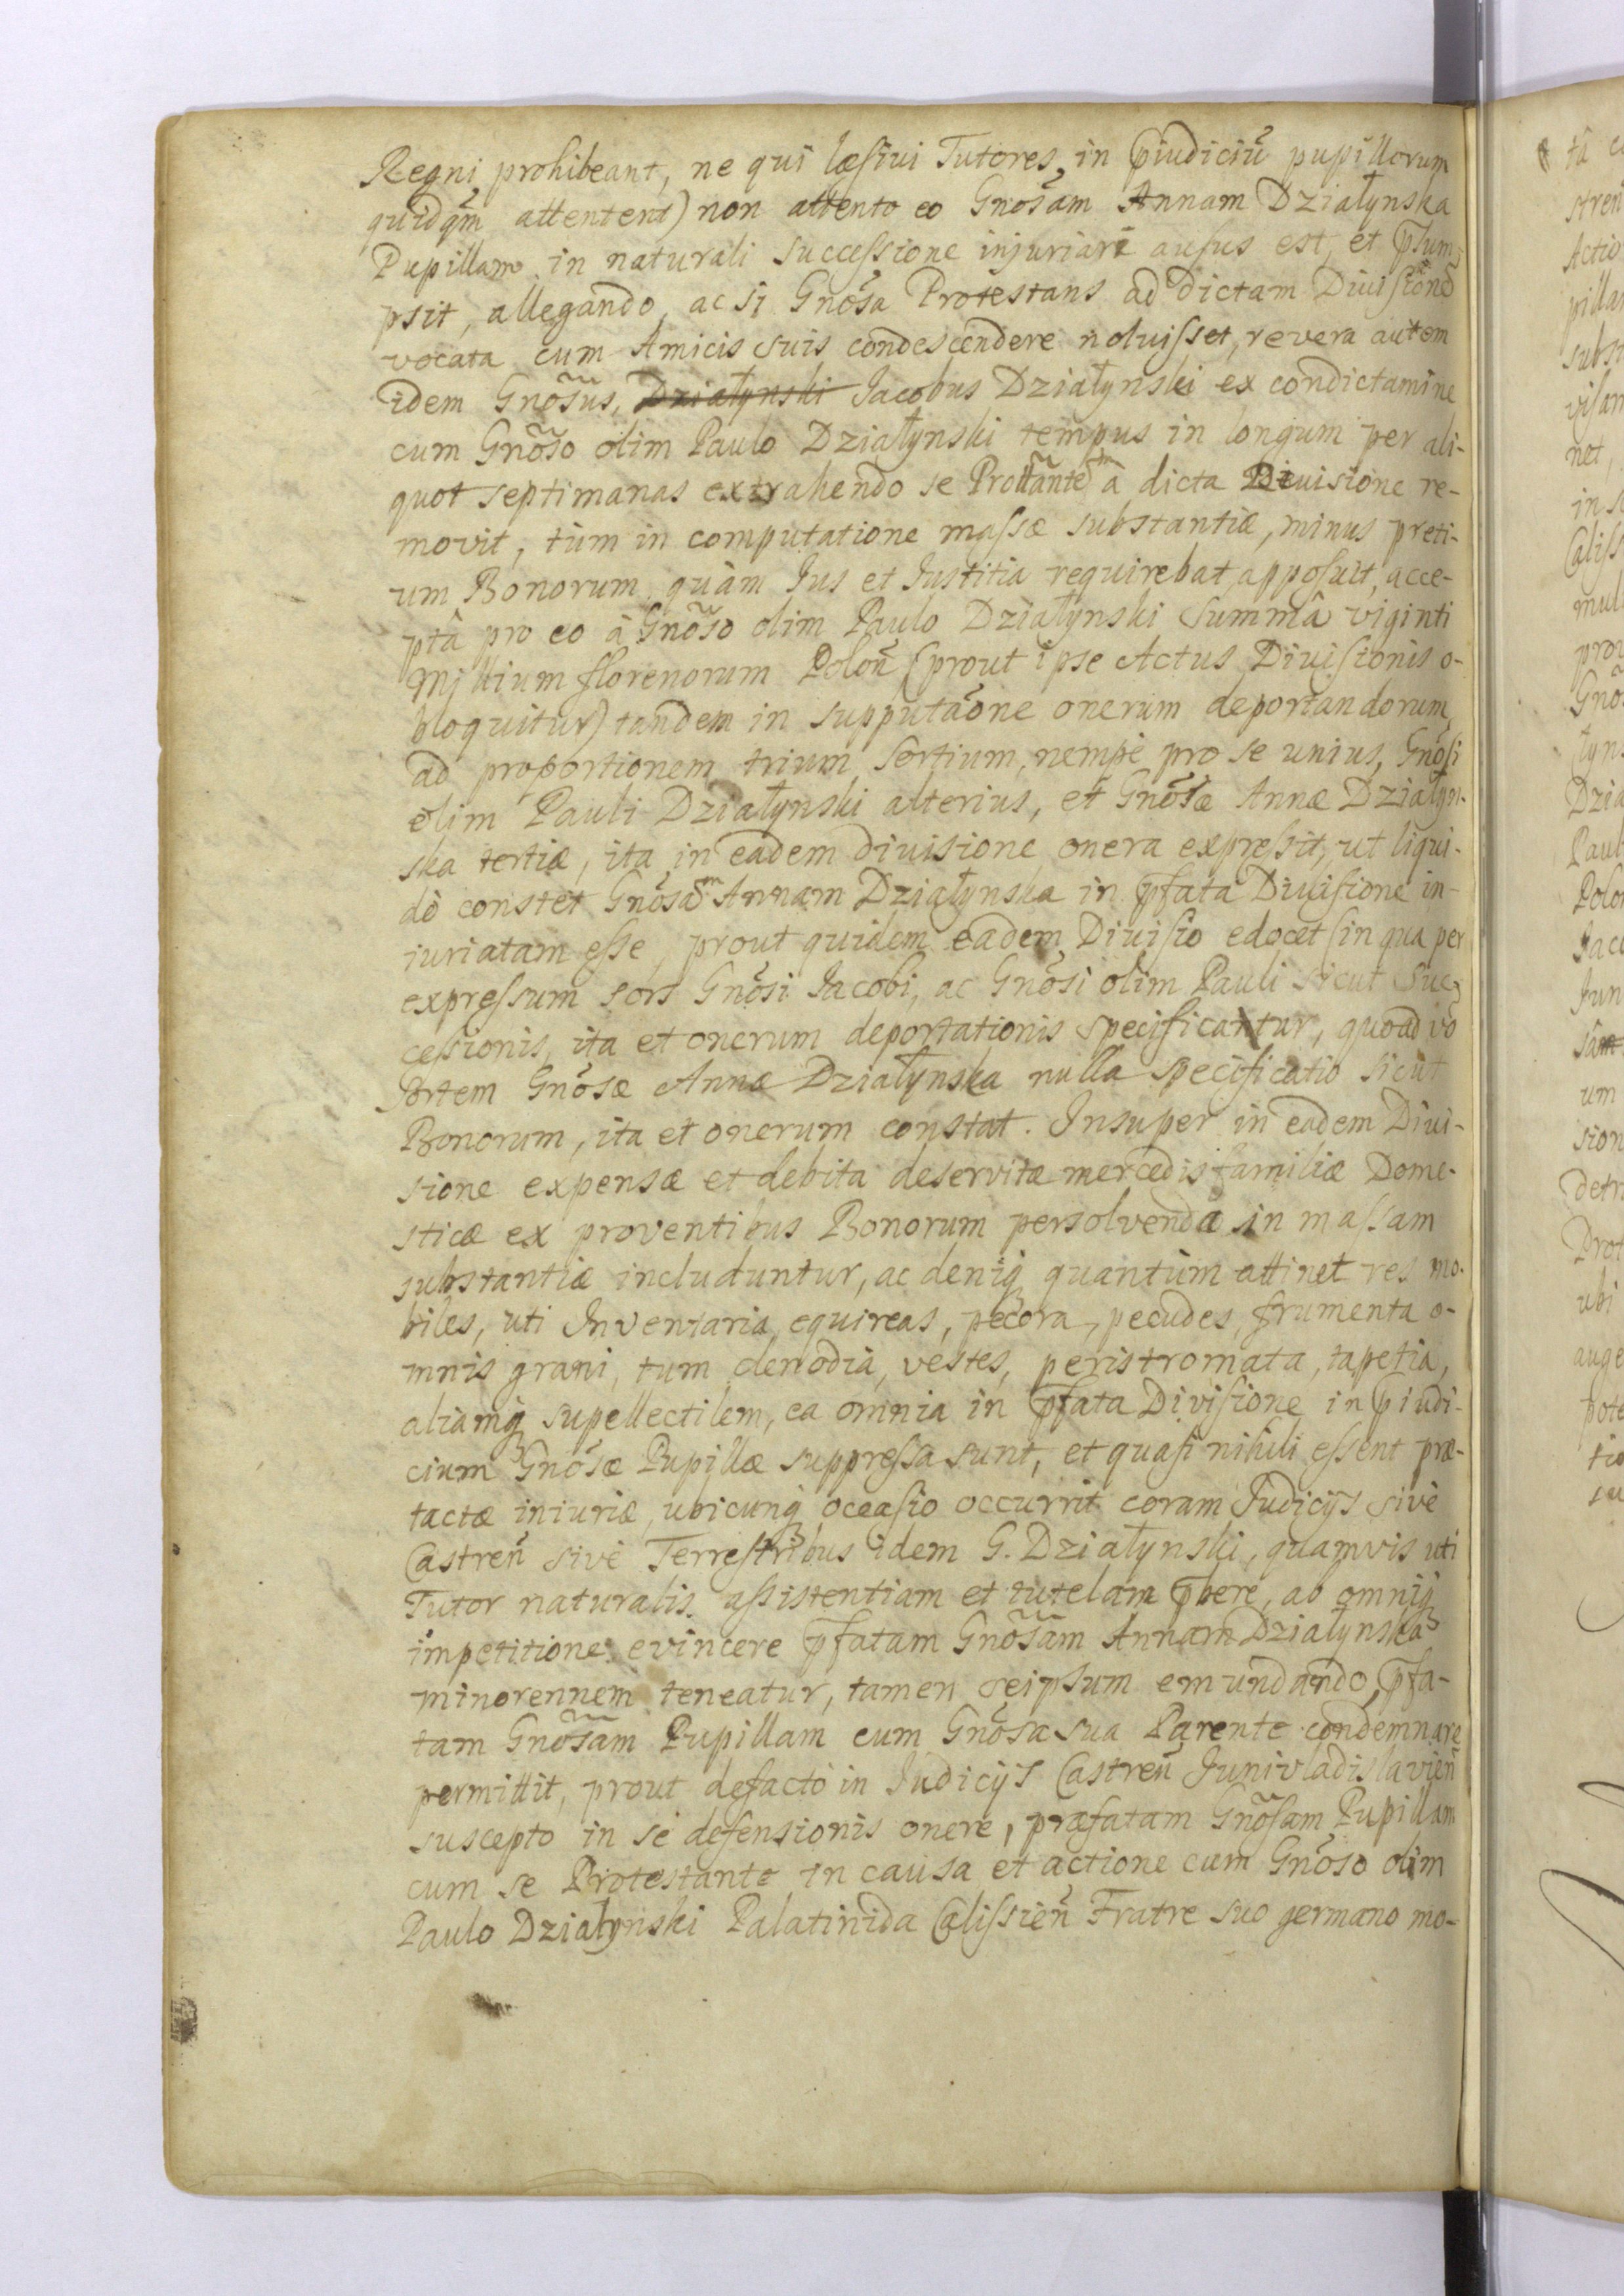 Regni prohibeant, ne qui læsivi Tutores, in p̄iudiciū pupillorum
quidq̄m attentent) non attento eo Gnõsam Annam Działynska
Pupillam in naturali successione injuriari ausus est, et p̄sum-
psit, allegando, ac si Gnõsa Protestans ad dictam Divisionē
vocata cum Amicis suis condescendere noluisset, revera autem
idem Gnõsus, Działynski Jacobus Działynski ex condictamine
cum Gnõso olim Paulo Działynski tempus in longum per ali-
quot septimanas extrahendo se Prottãntem à dicta Divisione re-
movit, tùm in computatione massæ substantiæ, minus preti-
um Bonorum quàm Jus et Justitia requirebat, apposuit, acce-
ptâ pro eo à Gnõso olim Paulo Działynski Summâ viginti
Millium florenorum Poloñ (prout ipse Actus Divisionis o-
bloquitur) tandem in supputãone onerum deportandorum,
ad proportionem trium Sortium, nempè pro se unius, Gnõsi
olim Pauli Działynski alterius, et Gnõsæ Annæ Działyn-
ska tertiæ, ita in eadem divisione onera expressit, ut liqui-
dò constet Gnõsam Annam Działynska in p̄fata Divisione in-
iuriatam esse, prout quidem eadem Divisio edocet in qua per
expressum sors Gnõsi Jacobi, ac Gnõsi olim Pauli sicut Suc-
cessionis, ita et onerum deportationis specificantur, quoad v̄o
Sortem Gnõsæ Annæ Działynska nulla specificatio sicut
Bonorum, ita et onerum constat. Insuper in eadem Divi-
sione expensæ et debita deservitæ mercedis familiæ Dome-
sticæ ex proventibus Bonorum persolvenda in massam
substantiæ includuntur, ac deniq̨ quantùm attinet res mo-
biles, uti Inventaria, equireas, pecora, pecudes, frumenta o-
mnis grani, tum clenodia, vestes, peristromata, tapetia,
aliamq̨ supellectilem, ea omnia in p̄fata Divisione in p̄iudi-
cium Gnõsæ Pupillæ suppressa sunt, et quasi nihili essent præ-
tactæ iniuriæ, ubicunq̨ occasio occurrit coram Judicijs sivè
Castreñ sivè Terrestribus idem G. Działynski, quamvis uti
Tutor naturalis assistentiam et tutelam p̄bere, ab omniq̨
impetitione evincere p̄fatam Gnõsam Annam Działynska
minorennem teneatur, tamen seipsum emundando, p̄fa-
tam Gnõsam Pupillam cum Gnõsa sua Parente condemnare
permittit, prout defactò in Judicijs Castreñ Junivladislavieñ
suscepto in se defensionis onere, præfatam Gnõsam Pupillam
cum se Protestante in causa et actione cum Gnõso olim
Paulo Działynski Palatinida Calissieñ Fratre suo germano mo-